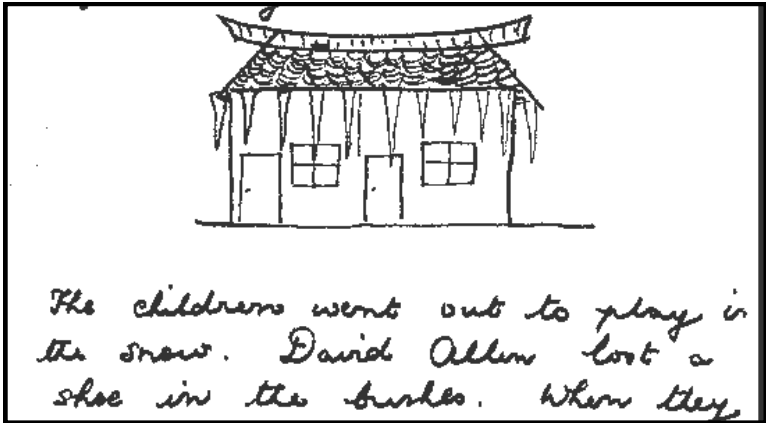 The children went out to play in
the snow. David Allen lost a
shoe in the bushes. When they